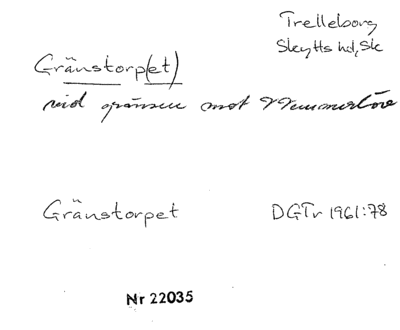 Trelleborg
Skytts hd, Sk
Gränstorp(et)
vid gränsen mot Hemmerlöv
Gränstorpet DGTr 1961:78
Nr 22035